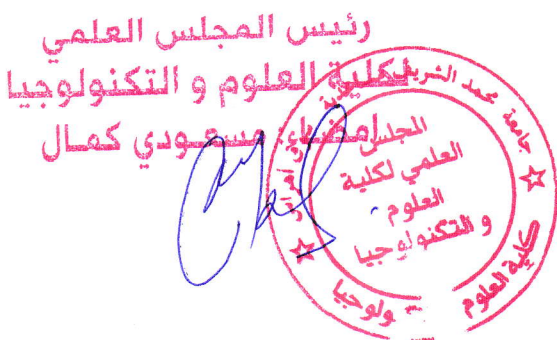 رئيس المجلس العلمي
لكلية العلوم و التكنولوجيا
إمضاء: مسعودي كمال
جامعة محمد الشريف
المجلس
العلمي لكلية
العلوم
و التكنولوجيا
كلية العلوم
ولوجيا